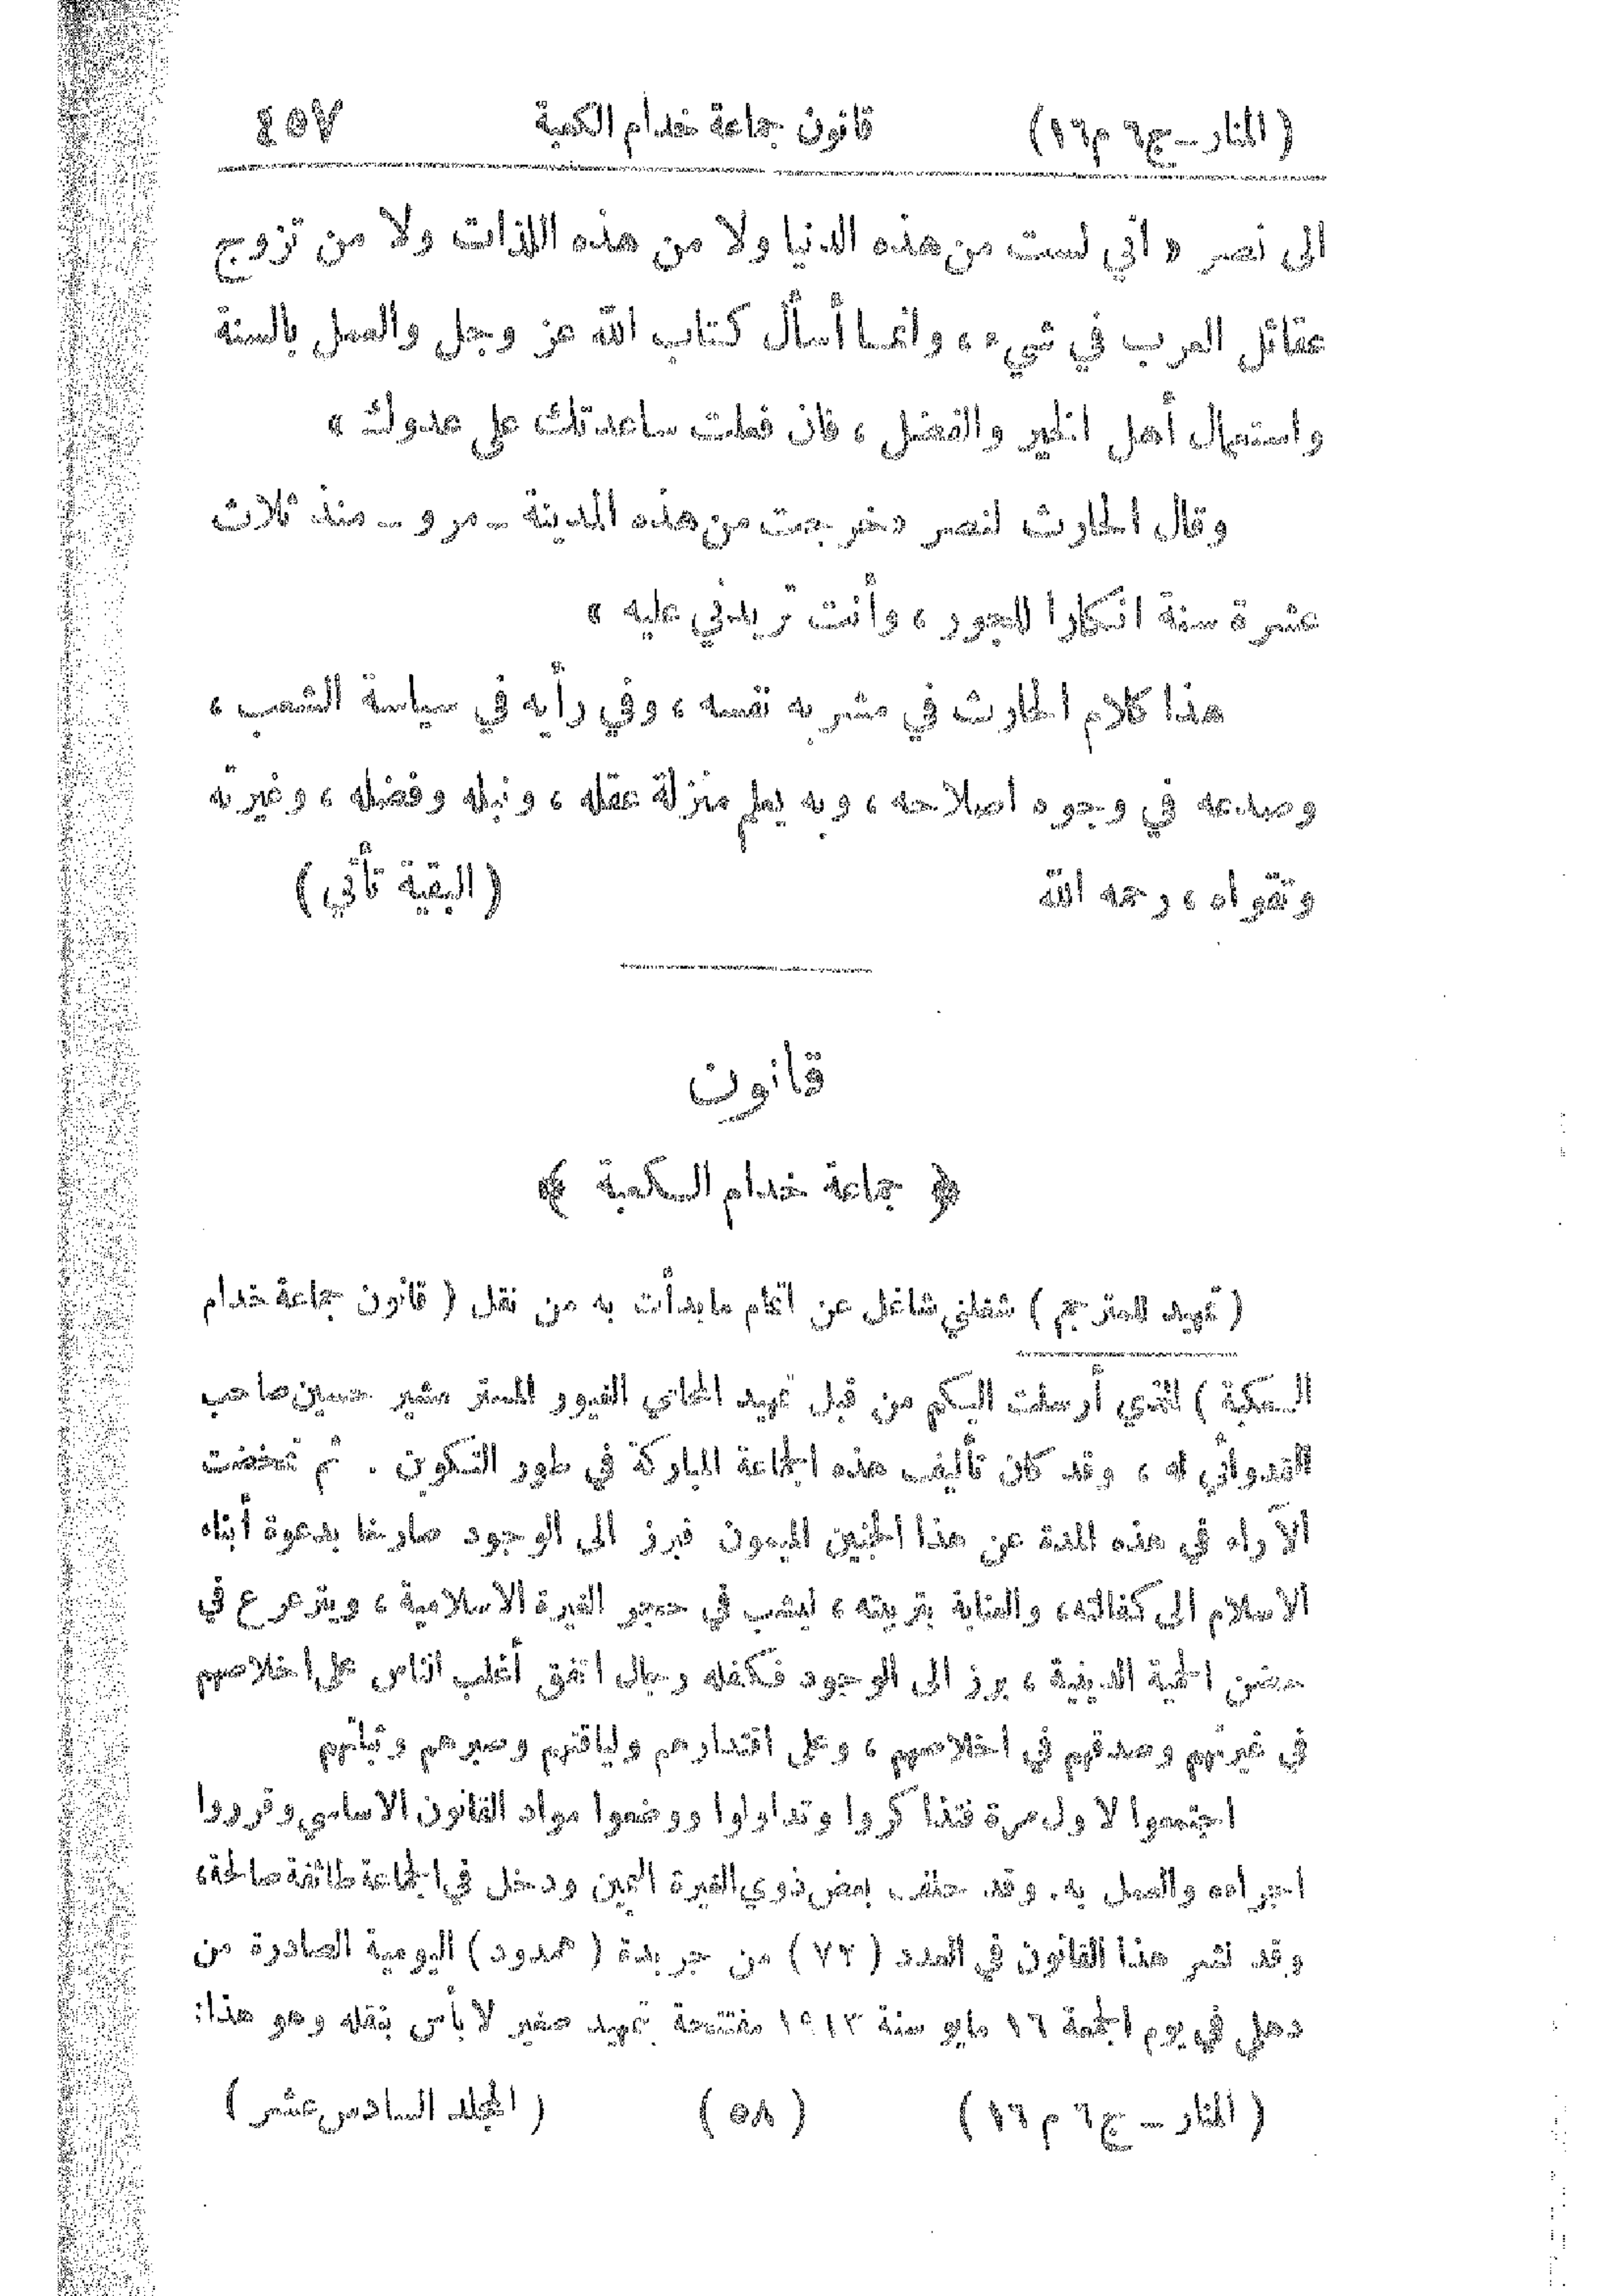 (المنار ــ ج ٦ م ١٦) قانون جماعة خدام الكعبة ٤٥٧
الى نصر « اني لست من هذه الدنيا ولا من هذه اللذات ولا من تزوج
عقائل العرب في شيء ، وانما أسأل كتاب الله عز وجل والعمل بالسنة
واستعمال أهل الخير والفضل ، فان فعلت ساعدتك على عدوك »
وقال الحارث لنصر « خرجت من هذه المدينة ــ مرو ــ منذ ثلاث
عشرة سنة انكارا للجور ، وأنت تريدني عليه »
هذا كلام الحارث في مشربه نفسه ، وفي رأيه في سياسة الشعب ،
وصدعه في وجوه اصلاحه ، وبه يعلم منزلة عقله ، ونبله وفضله ، وغيرته
وتقواه ، رحمه الله (البقية تأتي)
قانون
﴿ جماعة خدام الكعبة ﴾
(تمهيد للمترجم) شغلني شاغل عن اتمام ما بدأت به من نقل (قانون جماعة خدام
الكعبة) الذي أرسلت اليكم من قبل تمهيد المحامي الغيور المستر مشير حسين صاحب
القدوائي له ، وقد كان تأليف هذه الجماعة المباركة في طور التكوين . ثم تمخضت
الآراء في هذه المدة عن هذا الجنين الميمون فبرز الى الوجود صارخا بدعوة أبناء
الاسلام الى كفالته ، والعناية بتربيته ، ليشب في حجر الغيرة الاسلامية ، ويترعرع في
حضن الحمية الدينية ، برز الى الوجود فكفله رجال اتفق أغلب الناس على اخلاصهم
في غيرتهم وصدقهم في اخلاصهم ، وعلى اقتدارهم ولياقتهم وصبرهم وثباتهم
اجتمعوا لاول مرة فتذاكروا وتداولوا ووضعوا مواد القانون الاساسي وقرروا
اجراءه والعمل به . وقد حلف بعض ذوي الغيرة اليمين ودخل في الجماعة طائفة صالحة ،
وقد نشر هذا القانون في العدد (٧٣) من جريدة (همدرد) اليومية الصادرة من
دهلي في يوم الجمعة ١٦ مايو سنة ١٩١٣ مفتتحة بتمهيد صغير لا بأس بنقله وهو هذا:
(المنار ــ ج ٦ م ١٦) (٥٨) (المجلد السادس عشر)